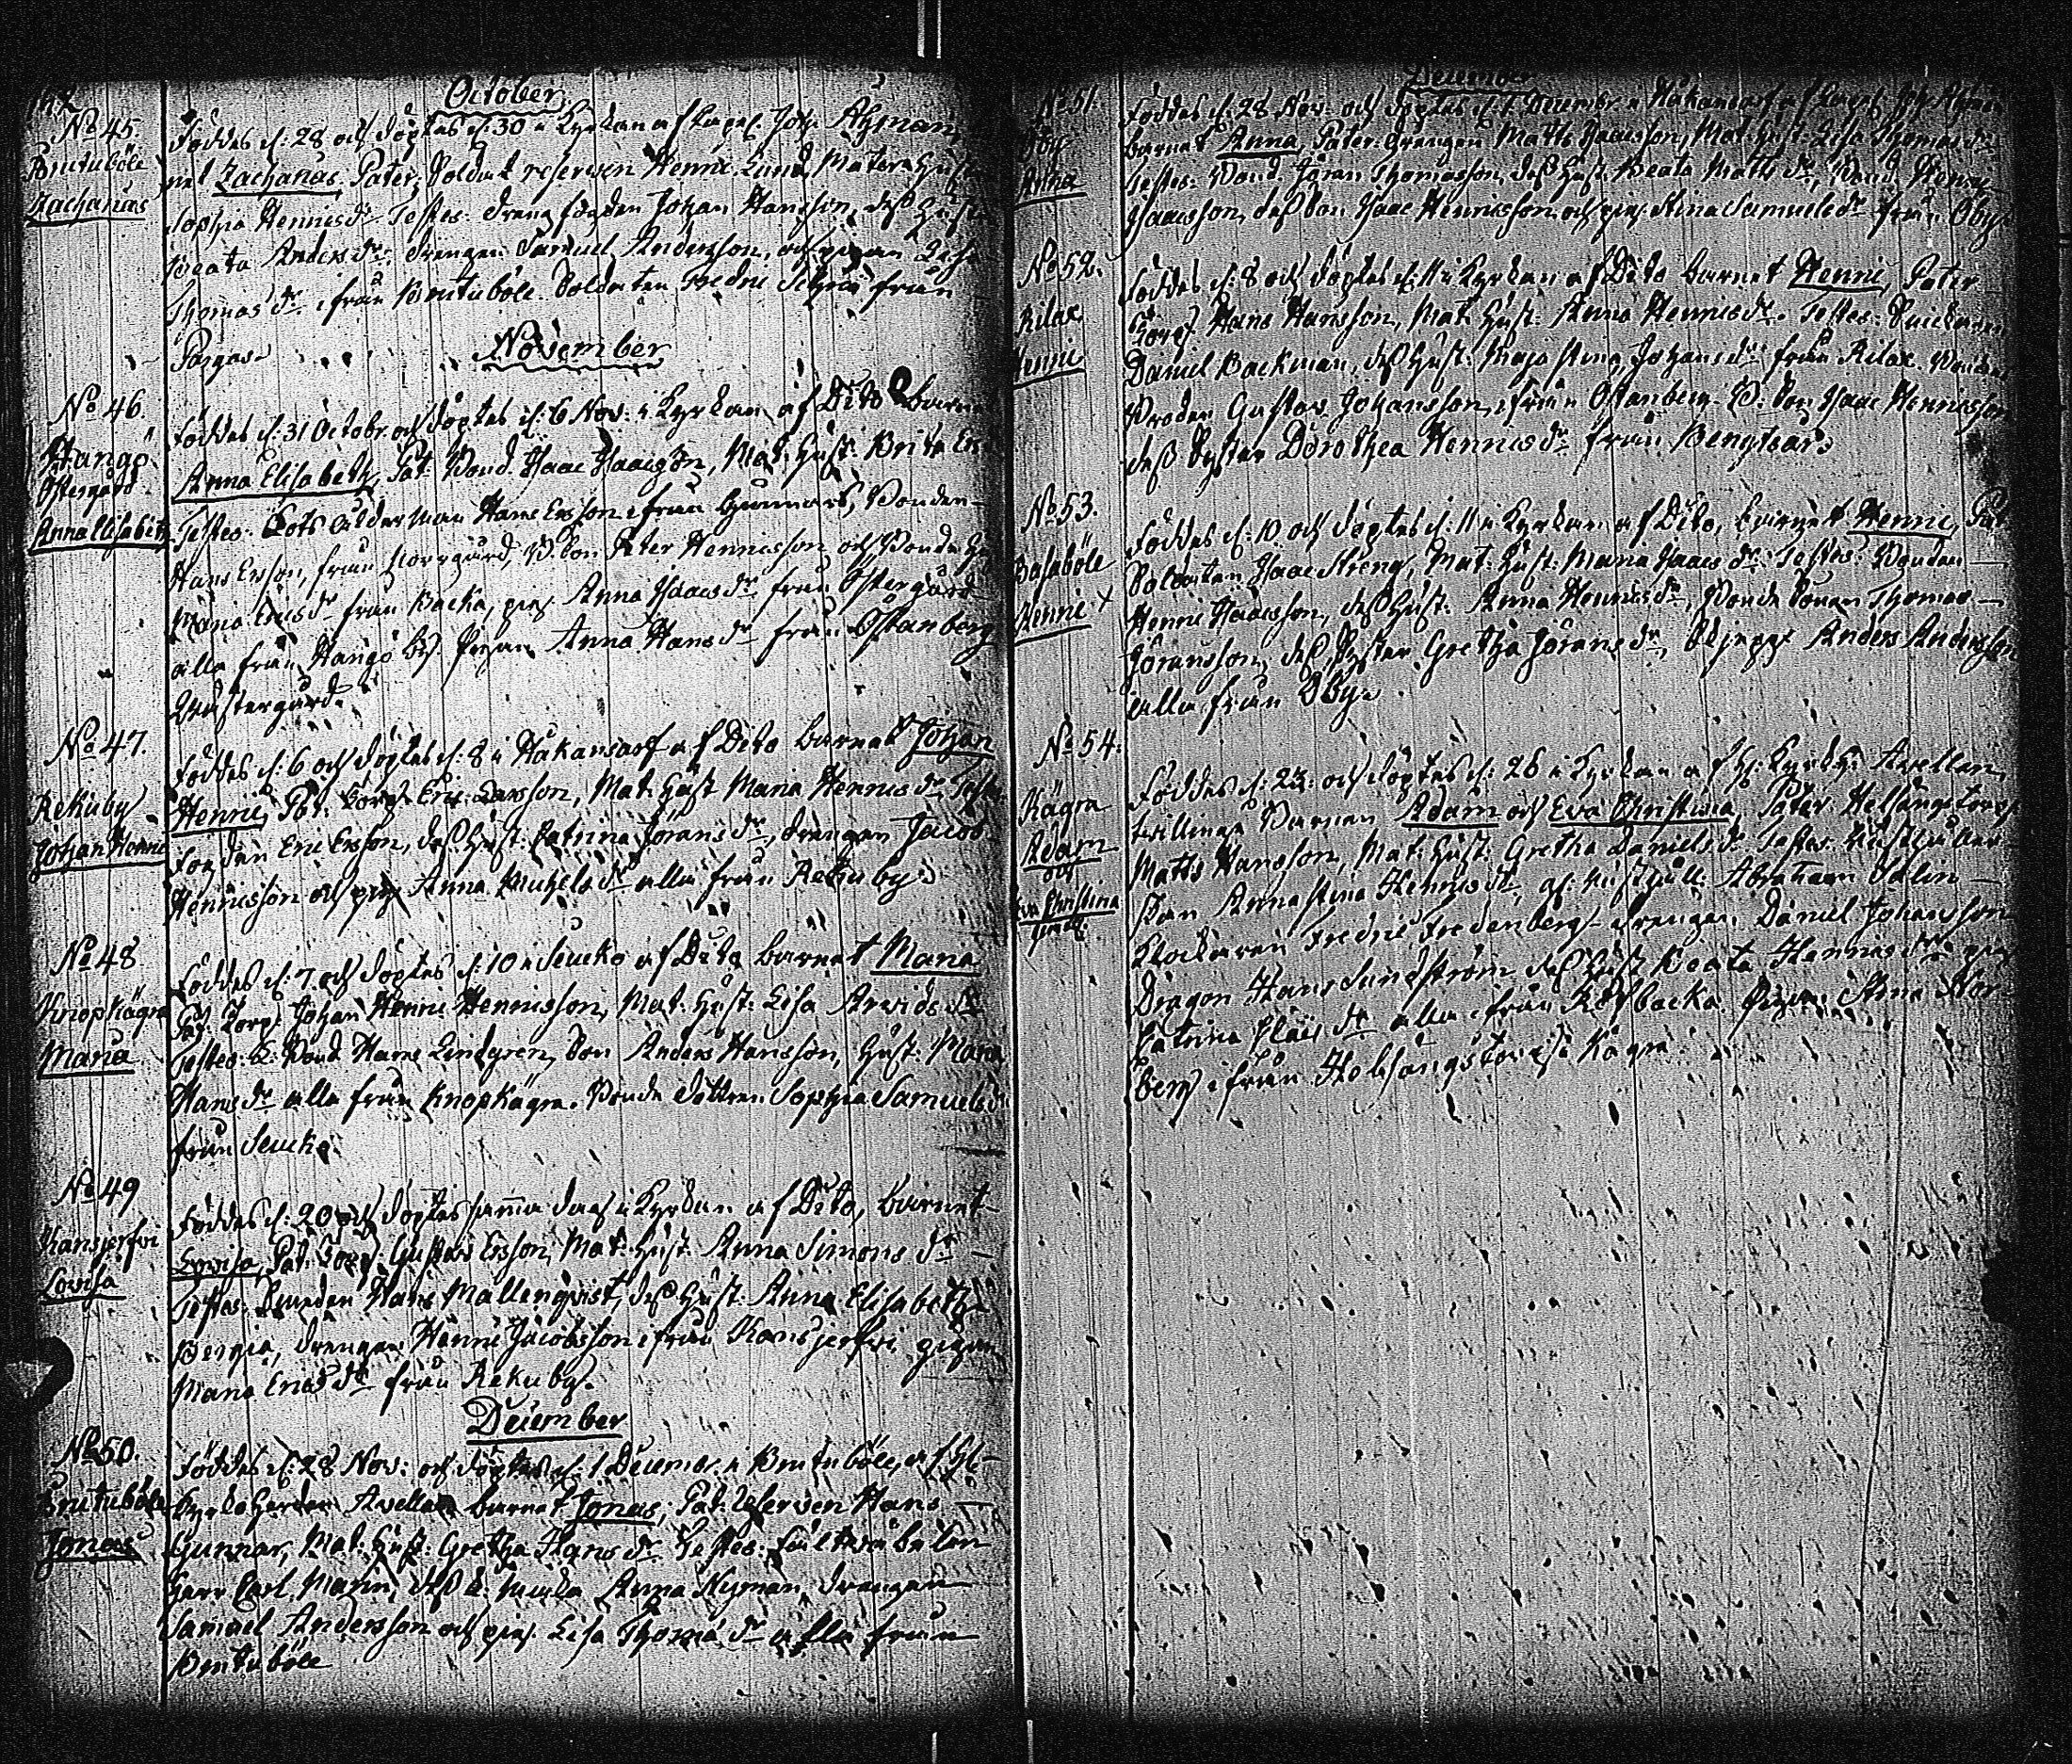 October
No 45.
Brutuböle
Zacharias
Föddes d: 28 och döptes d: 30 i Kyrkan af Capel. Joh: Åhman,
Zacharias, Pater: Soldat reserven Henric Lund, Mater: Hust:
Sophia Henricsdr. Testes: Johan Hansson, dess Hust:
Beata Andersdr, drengen Samuel Andersson, och pigan Lisa
Thomasdr ifrån Brutuböle. Soldaten Fredric från
Pargas
November
No 46.
Hangö
Östergård
Anna Elisabeth
Föddes d: 31 Octobr. och döptes d: 6 Nov: i Kyrkan af Dito barnet
Anna Elisabeth, Pat: Bond. Isaac Isaacsson, Mat: Hust: Brita
Testes: Lots Ålderman Hans Ersson ifrån Bonden
Hans Ersson, från Norrgård, B. Son Peter Henricsson och Bonde
Maria Ericsdr från Backa, pig. Anna Isaacsdr från Östergård
alla från Hangö by. Pigan Anna Hansdr från Östanberg
Westergård.
No 47.
Rekuby
Johan Henric
Föddes d: 6 och döptes d: 8 i Håkansarf af Dito barnet Johan
Henric, Pat: Torp. Eric Larsson, Mat: Hust Maria Henricsdr, Testes:
Eric Ersson, dess Hust: Catrina Jöransdr, drengen Jacob
Henricsson och pig. Anna Michelsdr alla från Rekuby.
No 48
Knopkägra
Maria
Föddes d: 7 och döptes d: 10 i Leucko af Dito barnet Maria
Pat: Torp: Johan Henric Henricsson, Mat: Hust: Lisa Arvidsdr
Testes: Bond Hans Lindgren, Son Anders Hansson, Hust: Maria
Hansdr alla från Knopkägra. Bonde dottren Sophia Samuelsdr
från Leucko.
No 49
Kansjerfvi
Lovisa
Föddes d: 20 och döptes samma dag i Kyrkan af Dito, barnet
Lovisa, Pat: Torp: Gustav Ersson, Mat: Hust: Anna Simonsdr
Testes: Hans Mallenqvist, dess Hust: Anna Elisabeth
drengen Henric Jacobsson ifrån Kansjerfvi, pigan
Maria Ericsdr från Rekuby.
December
No 50.
Brutuböle
Jonas
Föddes d: 28 Nov: och döptes d: 1 Decembr. i Brutuböle, af H:
Kyrkoherden Avellan barnet Jonas, Pat: Reserven Hans
Gunnar, Mat: Hust: Gretha Hansdr. Testes:
Herr Carl Marin, dess Anna Nyman, drengen
Samuel Andersson och pig. Lisa Thomædr alla från
Brutuböle
December
No 51.
Öby
Anna
Föddes d: 28 Nov: och döptes d: 1 Decembr. i Håkansarf af Capel. Joh: Åhman
barnet Anna, Pater: Drengen Matts Isaacsson, Mat: Hust: Lisa Thomasdr
Testes: Bond. Jöran Thomasson, dess Hust: Beata Mattsdr, Bond. Henric
Isaacsson, dess Son Isaac Henricsson och pig. Stina Samuelsdr från Öby.
No 52.
Rilax
Henric
Föddes d: 8 och döptes d: 11 i Kyrkan af Dito barnet Henric, Pater
Torp. Hans Hansson, Mat: Hust: Anna Henricsdr. Testes:
Daniel Backman, dess Hust: Maja Stina Johansdr från Rilax. Bonde
Gustav Johansson, ifrån Östanberg. B. Son Isaac Henricsson
dess Syster Dorothea Henricsdr från Bengtsår.
No 53.
Basaböle
Henric
Föddes d: 10 och döptes d: 11 i Kyrkan af Dito, barnet Henric, Pat:
Soldaten Isaac Streng, Mat: Hust: Maria Isaacsdr. Testes: Bonden
Henric Isaacsson, dess Hust: Anna Henricsdr, Bonde Sonen Thomas
Jöransson, dess Syster Gretha Jöransdr, Anders Andersson
alla från Öby.
No 54.
Kägra
Adam
och
Eva Christina
Föddes d: 23 och döptes d: 26 i Kyrkan af H: Kyrkoh: Avellan,
tvillinge Barnen Adam och Eva Christina, Pater Helsingstorp
Matts Hansson, Mat: Hust: Gretha Danielsdr. Testes:
Anna Stina Henricsdr, Abraham Salin
Klockaren Fredric Fredenberg, drengen Daniel Johansson
Dragon Hans Sundström dess Hust Beata Henricsdr, pig
Catrina Elaisdr alla ifrån Kyrkbacka. Pigan Stina Nor-
berg ifrån Helsingstorp i Kägra